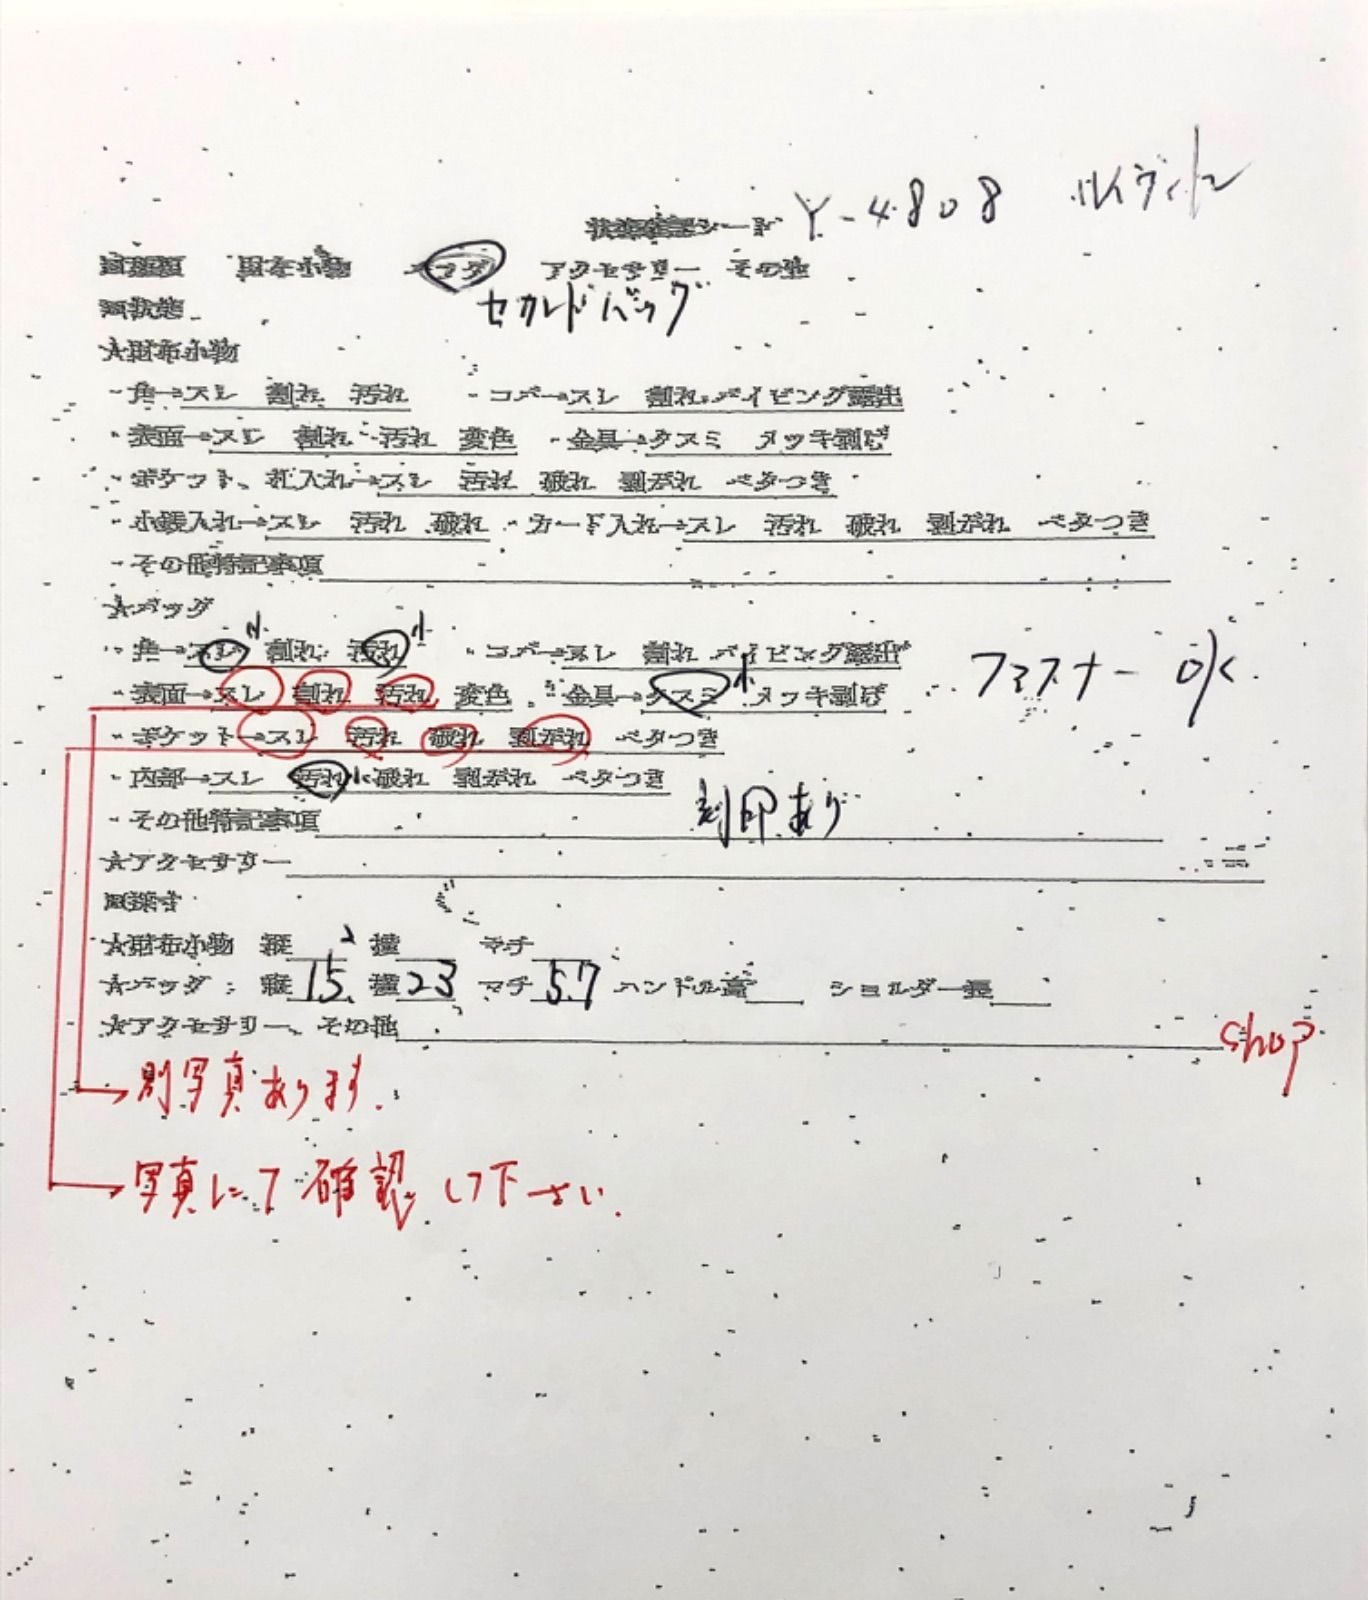 状態確認シート Y-4808 ルイヴィトン
財布小物 バッグ アクセサリー その他
セカンドバッグ
■状態
☆財布小物
・角→スレ 割れ 汚れ ・コバ→スレ 割れ パイピング露出
・表面→スレ 割れ 汚れ 変色 ・金具→クスミ メッキ剥げ
・ポケット、札入れ→スレ 汚れ 破れ 剥がれ ベタつき
・小銭入れ→スレ 汚れ 破れ ・カード入れ→スレ 汚れ 破れ 剥がれ ベタつき
・その他特記事項
☆バッグ
・角→スレ小 割れ 汚れ小 ・コバ→スレ 割れ パイピング露出
・表面→スレ 割れ 汚れ 変色 ・金具→クスミ小 メッキ剥げ ファスナー OK
・ポケット→スレ 汚れ 破れ 剥がれ ベタつき
・内部→スレ 汚れ小 破れ 剥がれ ベタつき
・その他特記事項 刻印あり
☆アクセサリー
■採寸
☆財布小物 縦 横 マチ
☆バッグ:縦15 横23 マチ5.7 ハンドル高 ショルダー長
☆アクセサリー、その他
shop
別写真あります.
写真にて確認して下さい.